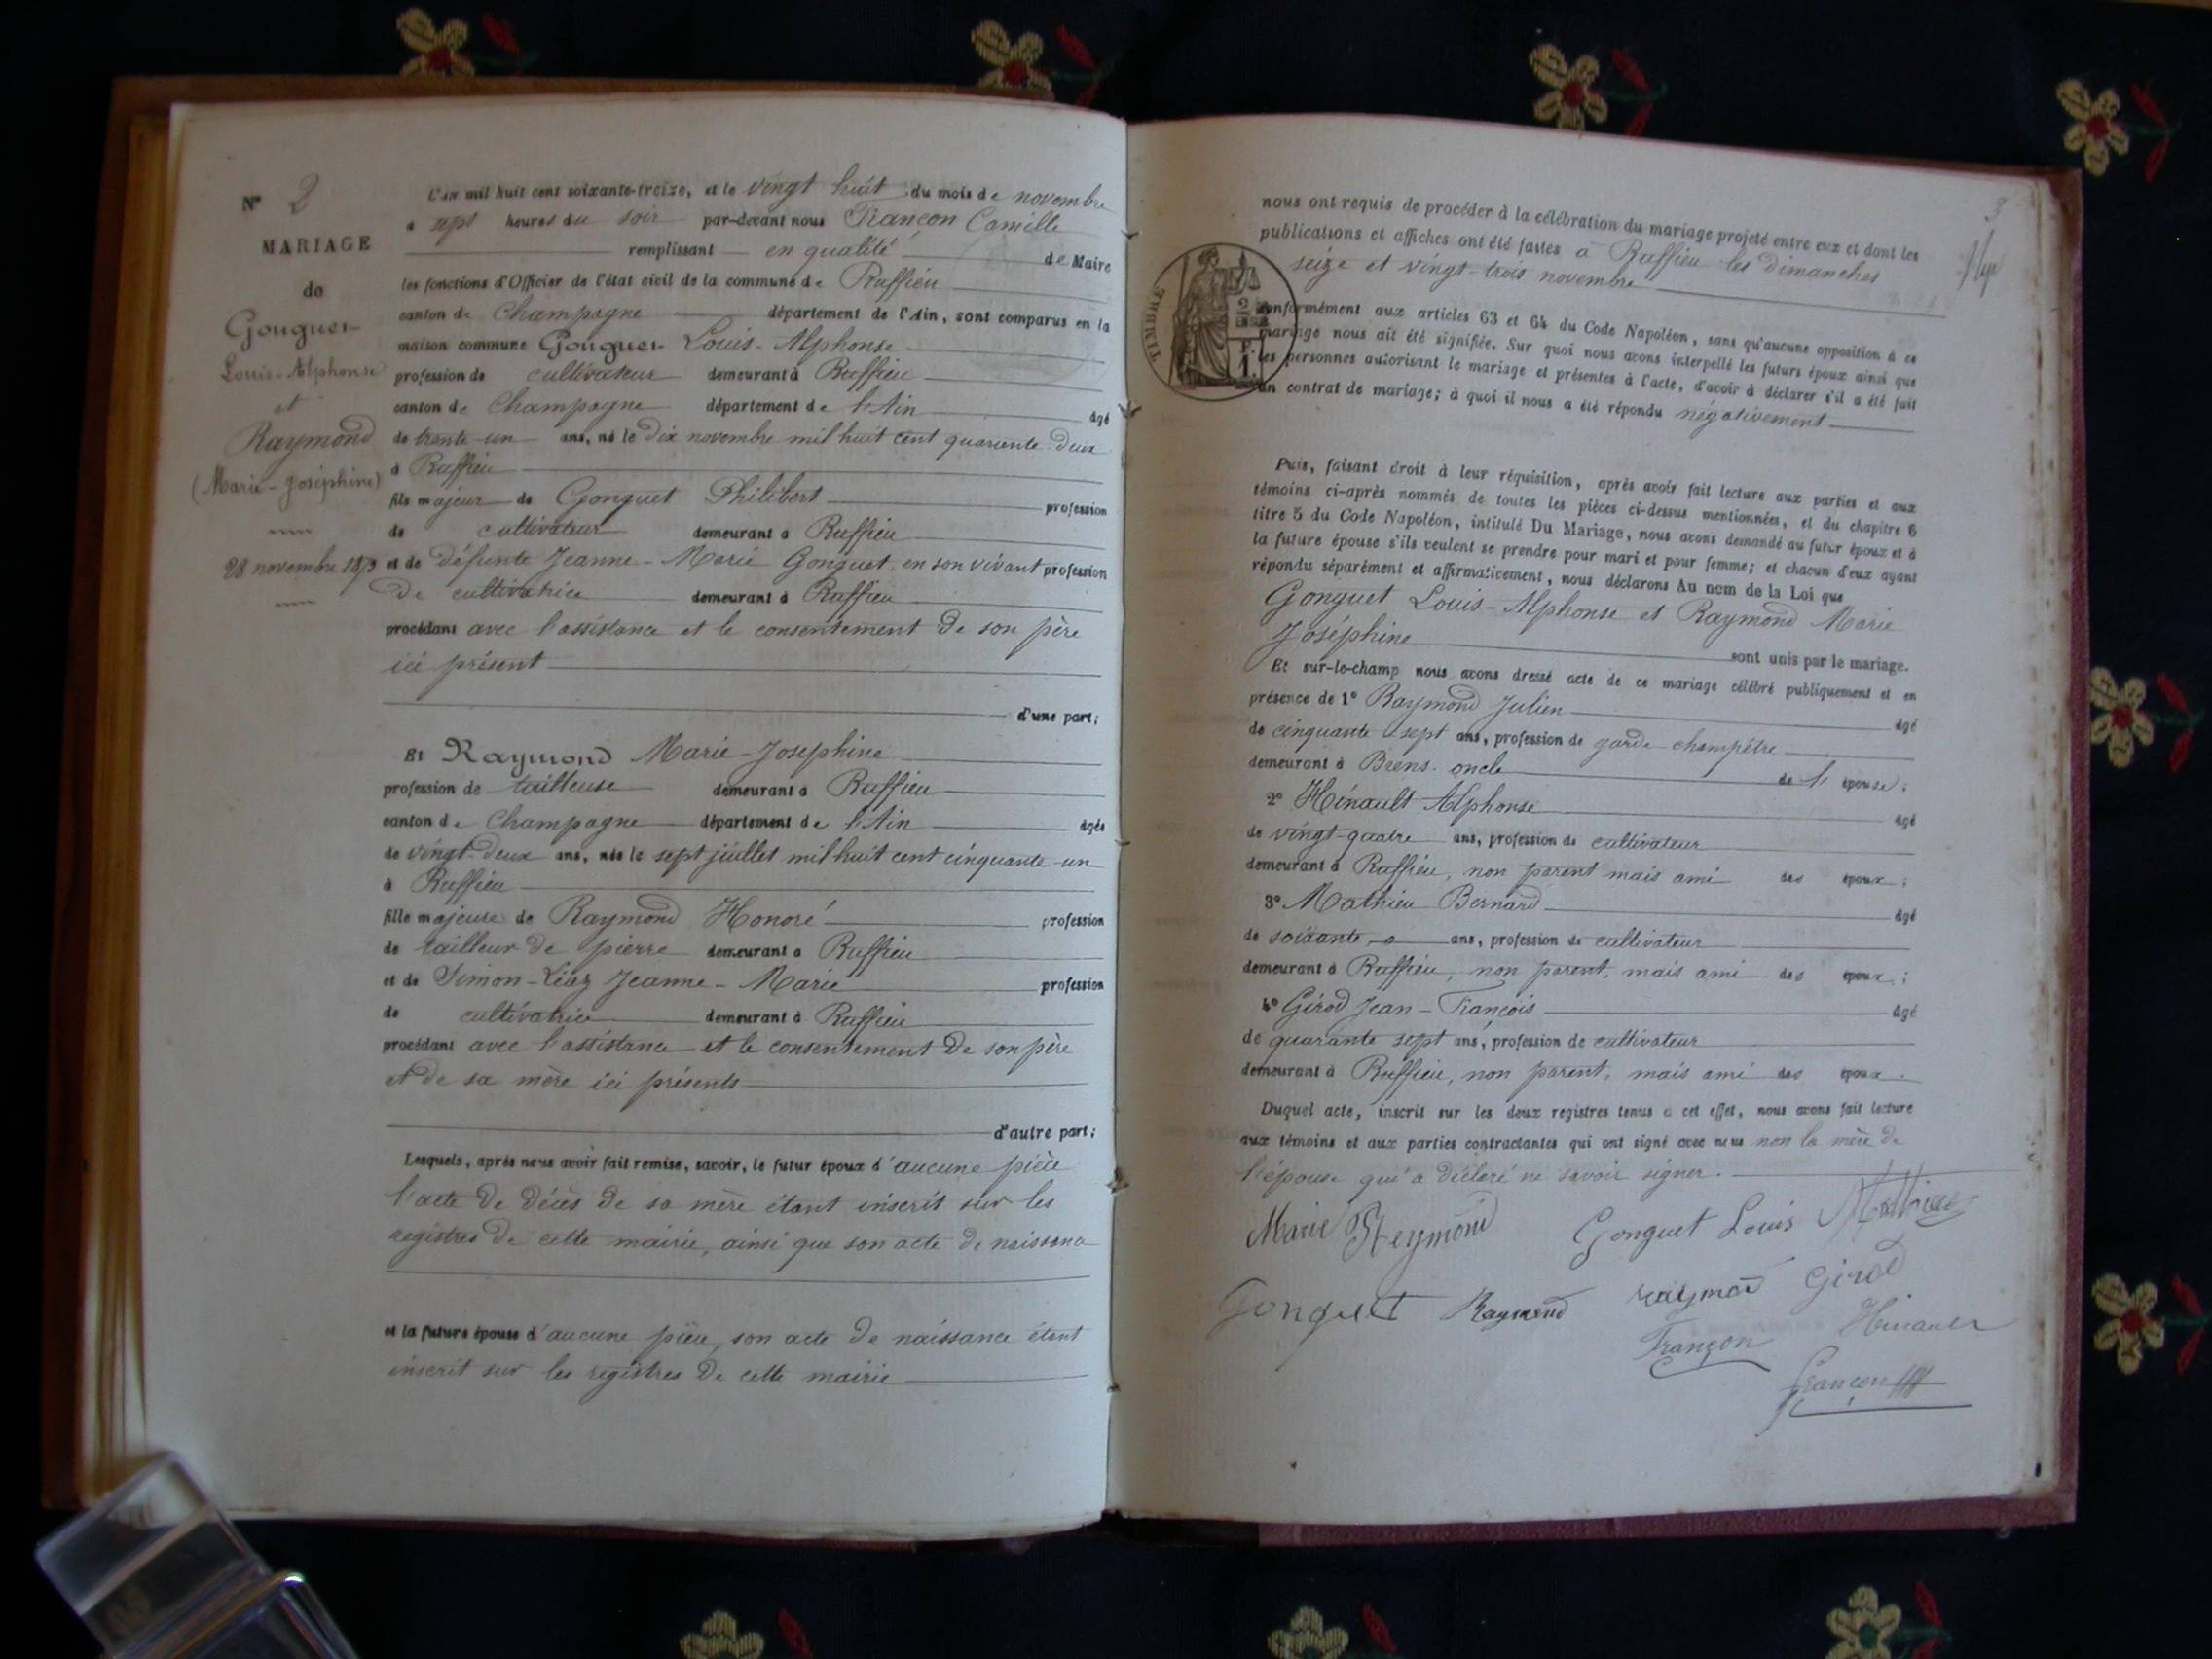 N° 2
MARIAGE
de
Gonguet
Louis-Alphonse
et
Raymond
(Marie-Joséphine)
28 novembre 1873
L'an mil huit cent soixante-treize, et le vingt huit du mois de novembre
à sept heures du soir par-devant nous Françon Camille
remplissant en qualité de Maire
les fonctions d'Officier de l'état civil de la commune de Ruffieu
canton de Champagne département de l'Ain, sont comparus en la
maison commune Gonguet Louis-Alphonse
profession de cultivateur demeurant à Ruffieu
canton de Champagne département de l'Ain âgé
de trente-un ans, né le dix novembre mil huit cent quarante-deux
à Ruffieu
fils majeur de Gonguet Philibert profession
de cultivateur demeurant à Ruffieu
et de défunte Jeanne-Marie Gonguet en son vivant profession
de cultivatrice demeurant à Ruffieu
procédant avec l'assistance et le consentement de son père
ici présent
d'une part;
Et Raymond Marie-Josephine
profession de tailleuse demeurant à Ruffieu
canton de Champagne département de l'Ain âgée
de vingt-deux ans, née le sept juillet mil huit cent cinquante-un
à Ruffieu
fille majeure de Raymond Honoré profession
de tailleur de pierre demeurant à Ruffieu
et de Simon-Léaz Jeanne-Marie profession
de cultivatrice demeurant à Ruffieu
procédant avec l'assistance et le consentement de son père
et de sa mère ici présents
d'autre part;
Lesquels, après nous avoir fait remise, savoir, le futur époux d'aucune pièce
l'acte de décès de sa mère étant inscrit sur les
registres de cette mairie, ainsi que son acte de naissance
et la future épouse d'aucune pièce, son acte de naissance étant
inscrit sur les registres de cette mairie
3
nous ont requis de procéder à la célébration du mariage projeté entre eux et dont les
publications et affiches ont été faites à Ruffieu les Dimanches
seize et vingt-trois novembre
TIMBRE
conformément aux articles 63 et 64 du Code Napoléon, sans qu'aucune opposition à ce
mariage nous ait été signifiée. Sur quoi nous avons interpellé les futurs époux ainsi que
les personnes autorisant le mariage et présentes à l'acte, d'avoir à déclarer s'il a été fait
un contrat de mariage; à quoi il nous a été répondu négativement
Puis, faisant droit à leur réquisition, après avoir fait lecture aux parties et aux
témoins ci-après nommés de toutes les pièces ci-dessus mentionnées, et du chapitre 6
titre 5 du Code Napoléon, intitulé Du Mariage, nous avons demandé au futur époux et à
la future épouse s'ils veulent se prendre pour mari et pour femme; et chacun d'eux ayant
répondu séparément et affirmativement, nous déclarons Au nom de la Loi que
Gonguet Louis-Alphonse et Raymond Marie
Joséphine
sont unis par le mariage.
Et sur-le-champ nous avons dressé acte de ce mariage célébré publiquement et en
présence de 1° Raymond Julien âgé
de cinquante sept ans, profession de garde-champêtre
demeurant à Brens. oncle de l' épouse;
2° Hénault Alphonse âgé
de vingt-quatre ans, profession de cultivateur
demeurant à Ruffieu, non parent mais ami des époux;
3° Mathieu Bernard âgé
de soixante ans, profession de cultivateur
demeurant à Ruffieu, non parent, mais ami des époux;
4° Girod Jean-François âgé
de quarante sept ans, profession de cultivateur
demeurant à Ruffieu, non parent, mais ami des époux.
Duquel acte, inscrit sur les deux registres tenus à cet effet, nous avons fait lecture
aux témoins et aux parties contractantes qui ont signé avec nous non la mère de
l'épouse qui a déclaré ne savoir signer.
Marie Reymond Gonguet Louis Mathieu
Gonguet Raymond Raymond Girod
Françon Hénault
Françon